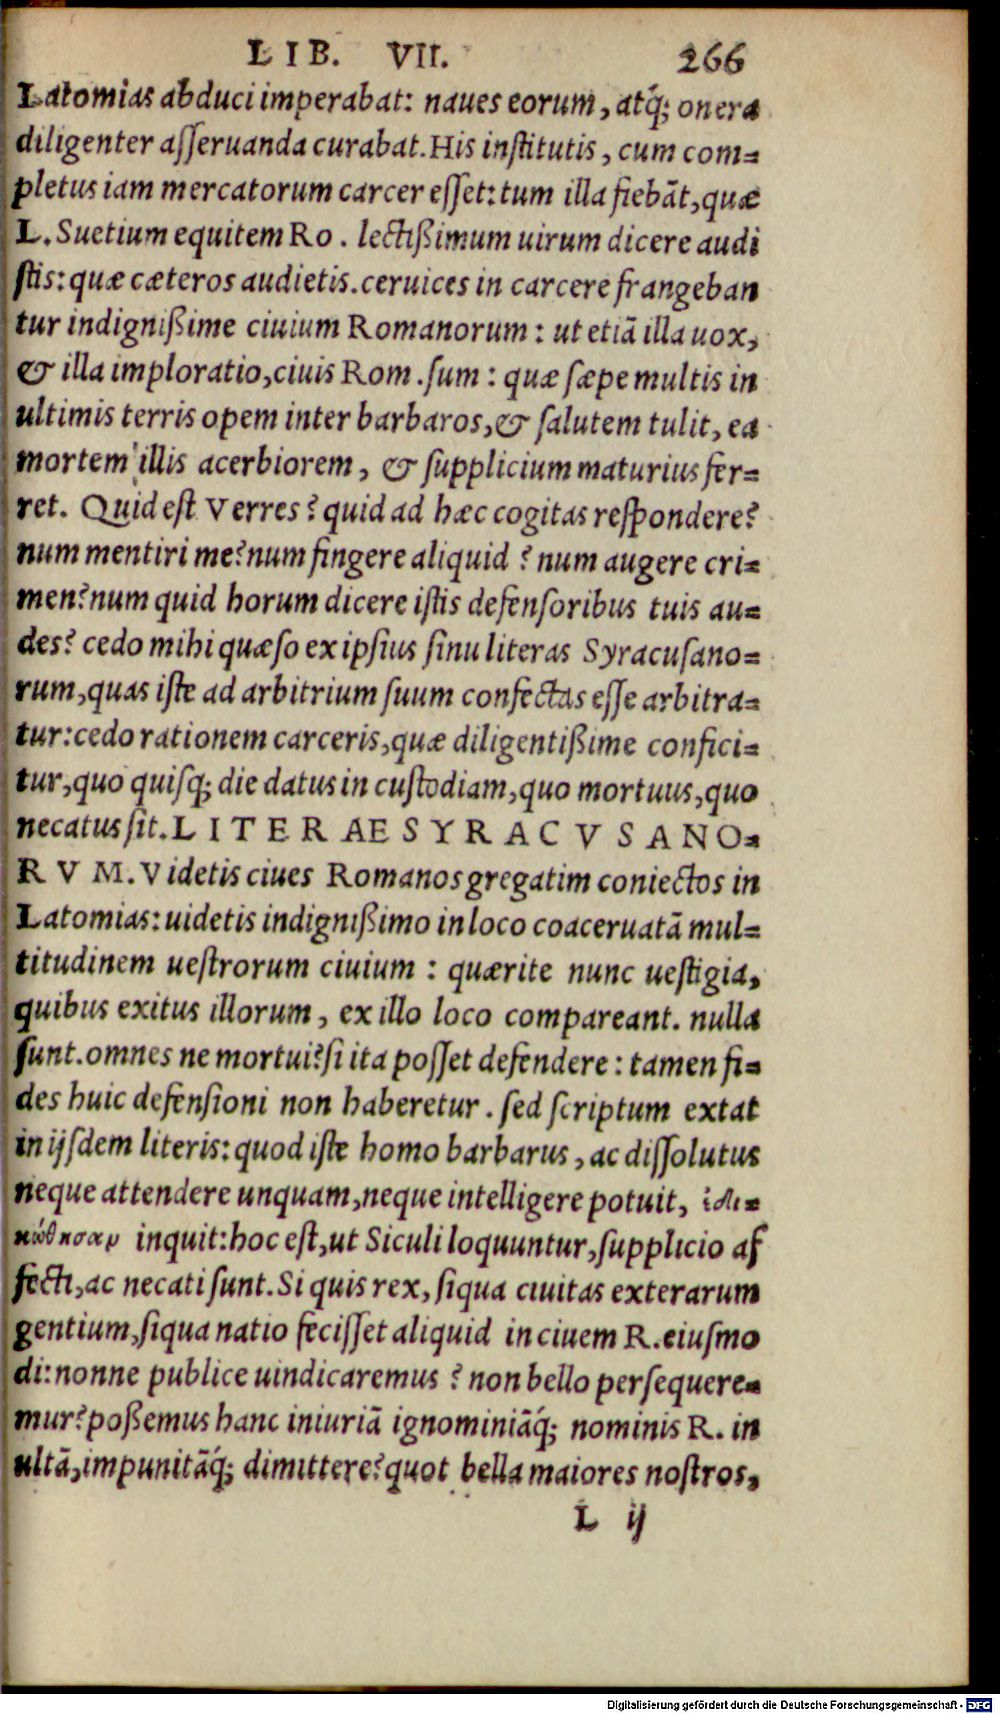 LIB. VII. 266
Latomias abduci imperabat: naues eorum, atq́; onera
diligenter aſſeruanda curabat. His inſtitutis, cum com=
pletus iam mercatorum carcer eſſet: tum illa fiebāt, quæ
L. Suetium equitem Ro. lectißimum uirum dicere audi
ſtis: quæ cæteros audietis. ceruices in carcere frangeban
tur indignißime ciuium Romanorum: ut etiā illa uox,
& illa imploratio, ciuis Rom. ſum: quæ ſæpe multis in
ultimis terris opem inter barbaros, & ſalutem tulit, ea
mortem illis acerbiorem, & ſupplicium maturius fer=
ret. Quid eſt Verres? quid ad hæc cogitas reſpondere?
num mentiri me? num fingere aliquid? num augere cri=
men? num quid horum dicere iſtis defenſoribus tuis au=
des? cedo mihi quæſo ex ipſius ſinu literas Syracuſano=
rum, quas iſte ad arbitrium ſuum confectas eſſe arbitra=
tur: cedo rationem carceris, quæ diligentißime confici=
tur, quo quiſq; die datus in cuſtodiam, quo mortuus, quo
necatus ſit. LITERAE SYRACVSANO=
RVM. Videtis ciues Romanos gregatim coniectos in
Latomias: uidetis indignißimo in loco coaceruatā mul=
titudinem ueſtrorum ciuium: quærite nunc ueſtigia,
quibus exitus illorum, ex illo loco compareant. nulla
ſunt. omnes ne mortui? ſi ita poſſet defendere: tamen fi=
des huic defenſioni non haberetur. ſed ſcriptum extat
in ijſdem literis: quod iſte homo barbarus, ac diſſolutus
neque attendere unquam, neque intelligere potuit, ἐδι=
κώθησαν inquit: hoc eſt, ut Siculi loquuntur, ſupplicio af
fecti, ac necati ſunt. Si quis rex, ſiqua ciuitas exterarum
gentium, ſiqua natio feciſſet aliquid in ciuem R. eiuſmo
di: nonne publice uindicaremus? non bello perſequere=
mur? poßemus hanc iniuriā ignominiāq́; nominis R. in
ultā, impunitāq́; dimittere? quot bella maiores noſtros,
L ij
Digitalisierung gefördert durch die Deutsche Forschungsgemeinschaft - DFG